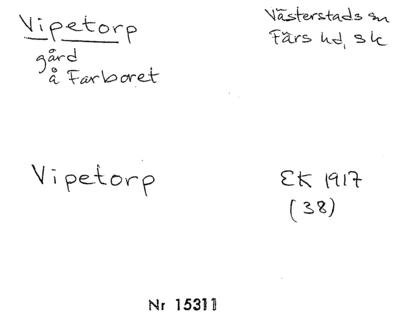 Vipetorp
gård
å Farboret
Västerstads sn
Färs hd, sk
Vipetorp
EK 1917
(38)
Nr 15311